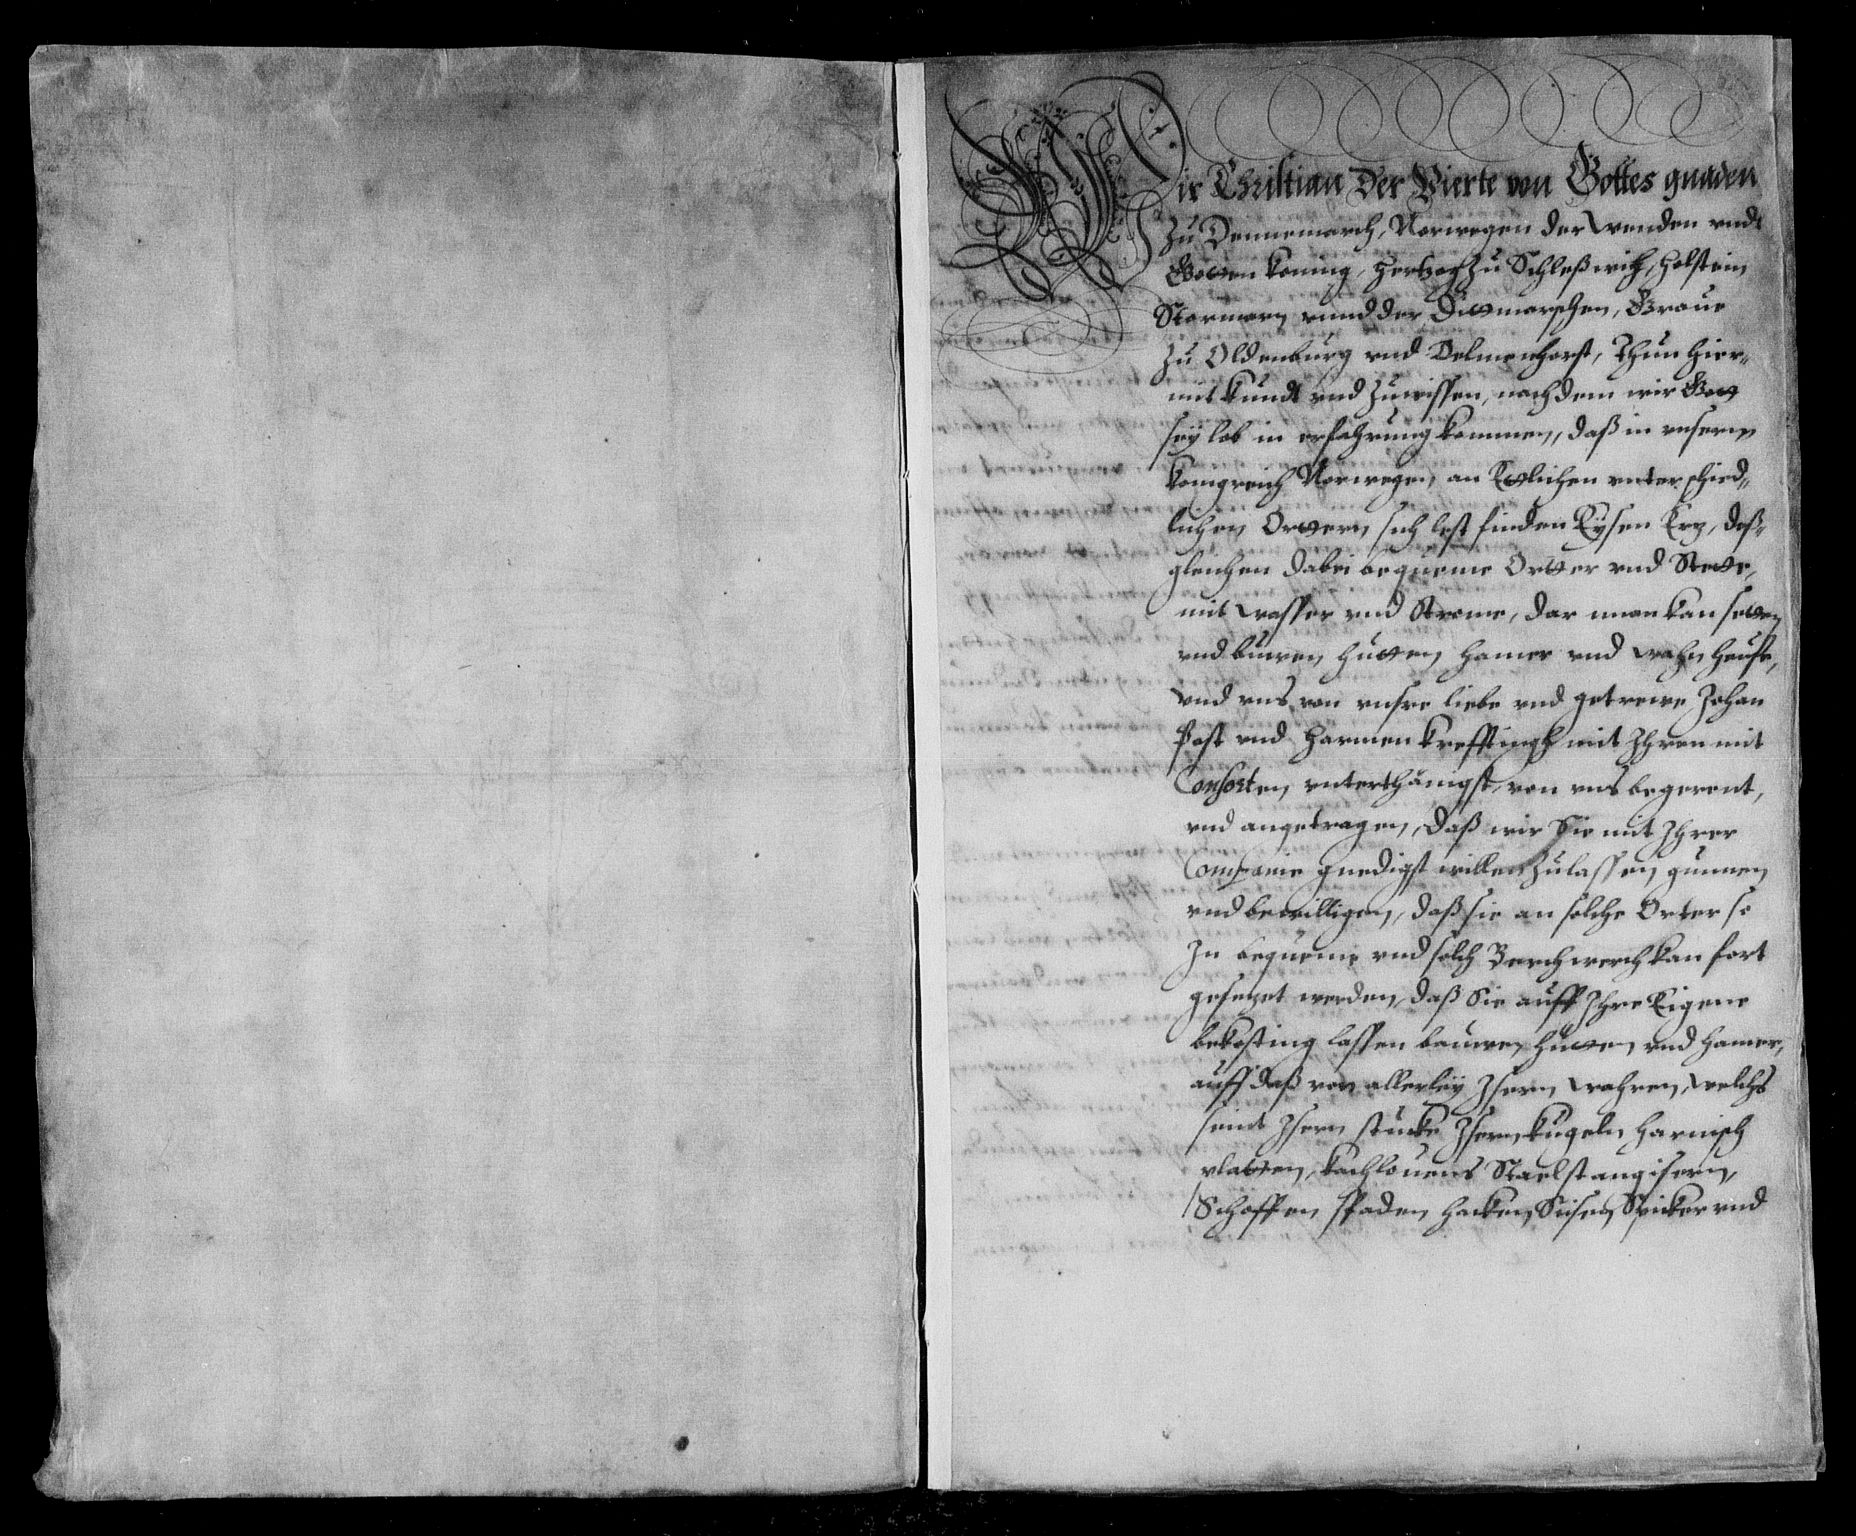 Wir Christian Der Vierte von Gottes gnaden
Zu Dennemarch, Norwegen der Wenden vndt
Gotten Koning, Hertzog Zu Schleßwich, Holstein
Stormarn vnnd der Ditmarschen, Graue
Zu Oldenburg vnd Delmenhorst, Thun hier-
mit kundt vnd Zuwissen, nach dem wir Gott
sey lob in erfahrung kommen, daß in vnserm
Konigreich Norwegen, an Etlichen vnterschied-
lichen Ortern sich lest finden Eysen Erz, deß-
gleichen dabei bequeme Orter vnd Stette,
mit Wasser vnd Strome, dar man kan setten
vnd buwen hutten hamer vnd Wahn heuse,
vnd vns von vnsre liebe vnd getrewe Johan
Post vnd Harmen Krefftingh mit Ihren mit
Consorten, vnterthänigst, von vns begerent,
vnd angetragen, daß wir Sie mit Ihrer
Companie gnedigst willen zulassen gunnen
vnd bewilligen, daß sie an solche Orter so
Zu bequeme vnd solch Berchwerch kan fort
gesezet werden, daß Sie auff Ihre Eigene
bekosting lassen bauwen hutten vnd hamer,
auff daß von allerley Isern Wahren, Welchs
seint Isern stucke Isern kugeln harnisch
platten, kachlouens Staelstangisern,
Schoffen spaden hacken Seisen Spicker vnd